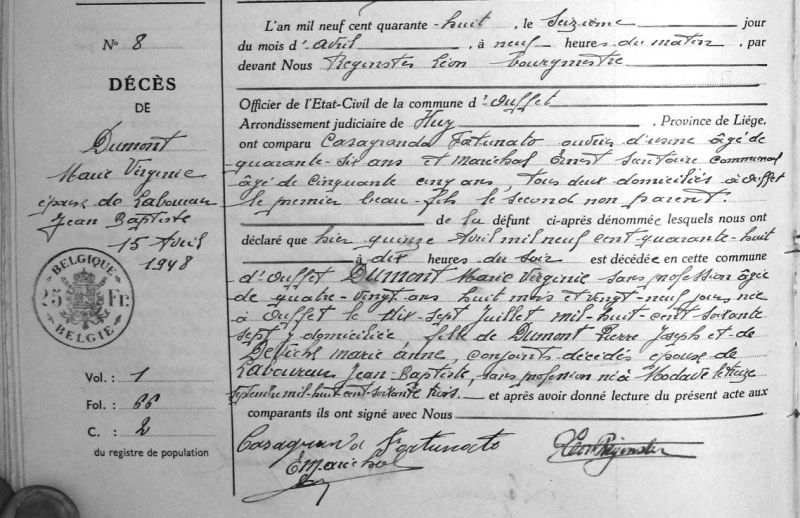 N° 8
DÉCÈS
DE
Dumont
Marie Virginie
épouse de Laboureur
Jean Baptiste
15 Avril
1948
BELGIQUE
25 Fr.
BELGIE
Vol. : 1
Fol. : 66
C. : 2
du registre de population
L'an mil neuf cent quarante-huit, le seizième jour
du mois d'avril, à neuf heures du matin, par
devant Nous Reginster Léon bourgmestre
Officier de l'Etat-Civil de la commune d'Ouffet
Arrondissement judiciaire de Huy, Province de Liége,
ont comparu Casagranda Fortunato ouvrier d'usine âgé de
quarante-six ans et Maréchal Ernest secrétaire communal
âgé de cinquante cinq ans, tous deux domiciliés à Ouffet
le premier beau-fils le second non parent.
de la défunt ci-après dénommée lesquels nous ont
déclaré que hier quinze Avril mil neuf cent quarante-huit
à dix heures du soir est décédée en cette commune
d'Ouffet Dumont Marie Virginie sans profession âgée
de quatre-vingt ans huit mois et vingt-neuf jours née
à Ouffet le dix-sept juillet mil-huit-cent soixante
sept y domiciliée, fille de Dumont Pierre Joseph et de
marie anne, conjoints décédés épouse de
Laboureur Jean-Baptiste, sans profession né à Modave le
septembre mil-huit cent-soixante trois. et après avoir donné lecture du présent acte aux
comparants ils ont signé avec Nous
Casagranda Fortunato
E Maréchal
Léon Reginster